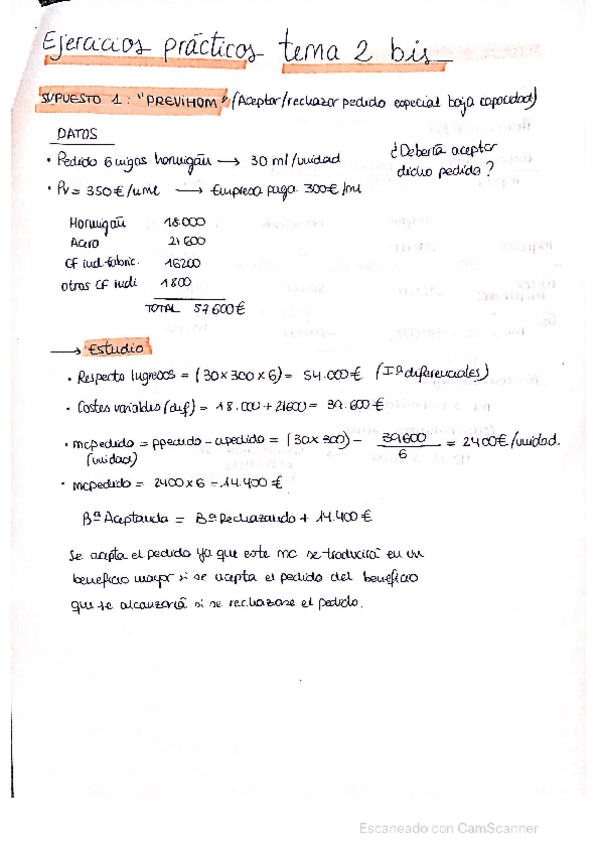 Ejercicios prácticos tema 2 bis
SUPUESTO 1: "PREVIHOM" (Aceptar/rechazar pedido especial baja capacidad)
DATOS
• Pedido 6 vigas hormigón → 30 ml/unidad
¿Debería aceptar
dicho pedido?
• Pv = 350€/uml → Empresa paga 300€/ml
Hormigón 18.000
Acero 21 600
CF ind. fabric. 16200
otros CF indi 1800
TOTAL 57600€
→ Estudio
• Respecto Ingresos = (30x300x6) = 54.000€ (Iºdiferenciales)
• Costes variables (dif) = 18.000+21600 = 39.600€
• mcpedido = ppedido - cvpedido = (30x300) - 39600/6 = 2400€/unidad.
(unidad)
• mcpedido = 2400x6 = 14.400€
BºAceptando = BºRechazando + 14.400€
Se acepta el pedido ya que este mc se traducirá en un
beneficio mayor si se acepta el pedido del beneficio
que se alcanzaría si se rechazase el pedido.
Escaneado con CamScanner